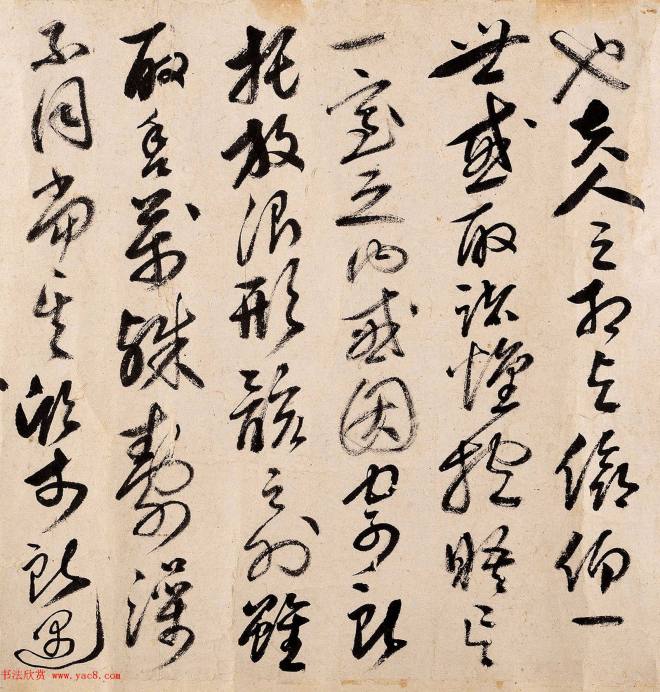 也夫人之相與俯仰一
世或取諸懷抱晤言
一室之内或因寄所
托放浪形骸之外雖
取舍萬殊靜躁
不同當其欣於所遇
书法欣赏 www.yac8.com